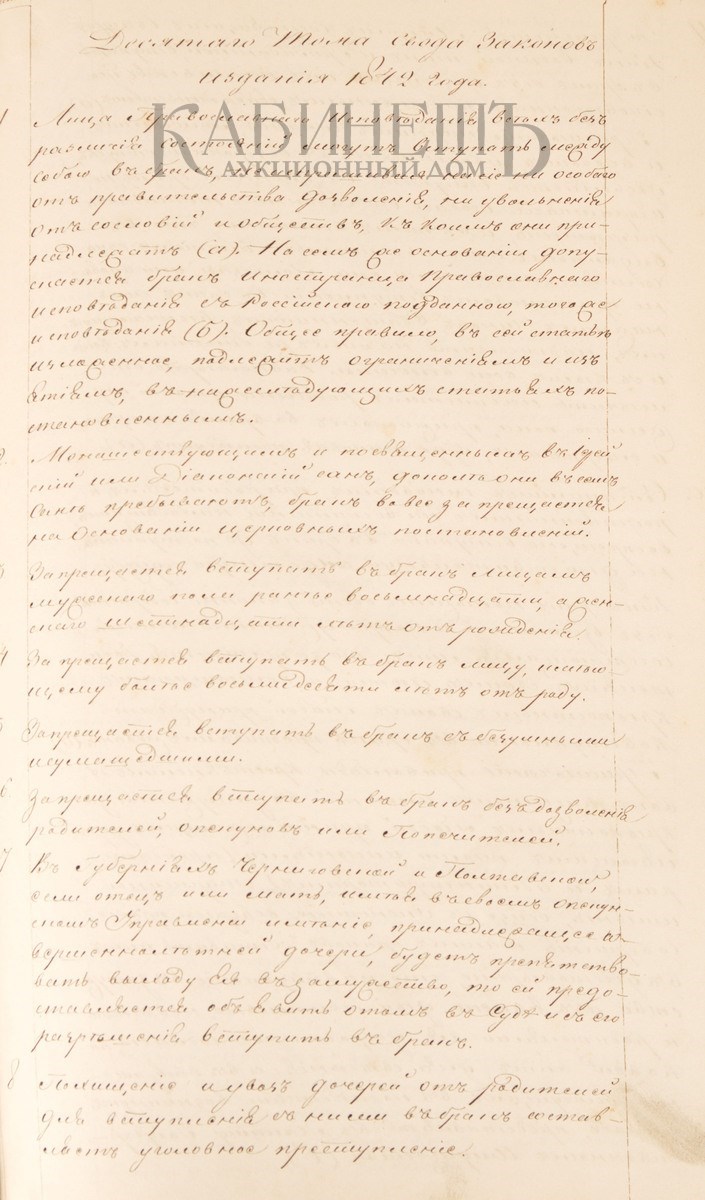 Десятаго Тома Свода Законовъ
изданія 1842 года.
КАБИНЕТЪ
АУКЦИОННЫЙ ДОМ
1 Лица Православнаго Исповѣданія всѣмъ безъ
различія состояній могутъ вступать между
собою въ бракъ, не испрашивая на сіе ни особаго
отъ правительства дозволенія, ни увольненія
отъ сословій и обществъ, къ коимъ они при-
надлежатъ (а). На семъ же основаніи допу-
скается бракъ иностранца Православнаго
исповѣданія съ Россійскою подданною, того же
исповѣданія (б). Общее правило, въ сей статьѣ
изложенное, подлежитъ ограниченіямъ и изъ
ятіямъ, въ нижеслѣдующихъ статьяхъ по-
становленнымъ.
2. Монашествующимъ и посвященнымъ въ Іерей
скій или Діаконскій санъ, доколѣ они въ семъ
санѣ пребываютъ, бракъ вовсе запрещается
на основаніи церковныхъ постановленій.
3 Запрещается вступать въ бракъ лицамъ
мужескаго пола ранѣе восьмнадцати, а жен-
скаго шестнадцати лѣтъ отъ рожденія.
4 Запрещается вступать въ бракъ лицу, имѣю-
щему болѣе восьмидесяти лѣтъ отъ роду.
5 Запрещается вступать въ бракъ съ безумными
и сумашедшими.
6 Запрещается вступать въ бракъ безъ дозволенія
родителей, опекуновъ или Попечителей.
7 Въ Губерніяхъ Черниговской и Полтавской,
если отецъ или мать, имѣя въ своемъ опекун-
скомъ Управленіи имѣніе, принадлежащее со-
вершеннолѣтней дочери, будетъ препятство-
вать выходу ея въ замужство, то ей предо-
ставляется объявить о томъ въ Судѣ и съ его
разрѣшенія вступить въ бракъ.
8 Похищеніе и увозъ дочерей отъ родителей
для вступленія съ ними въ бракъ состав-
ляетъ уголовное преступленіе.